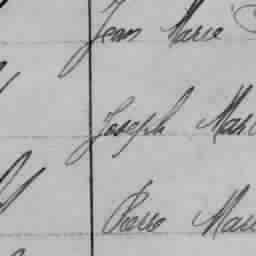 Jean Marie
Joseph Mari
Pierre Mari